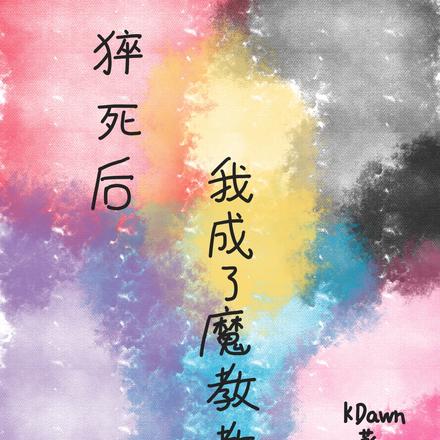 猝死后
我成了魔教
KDawn